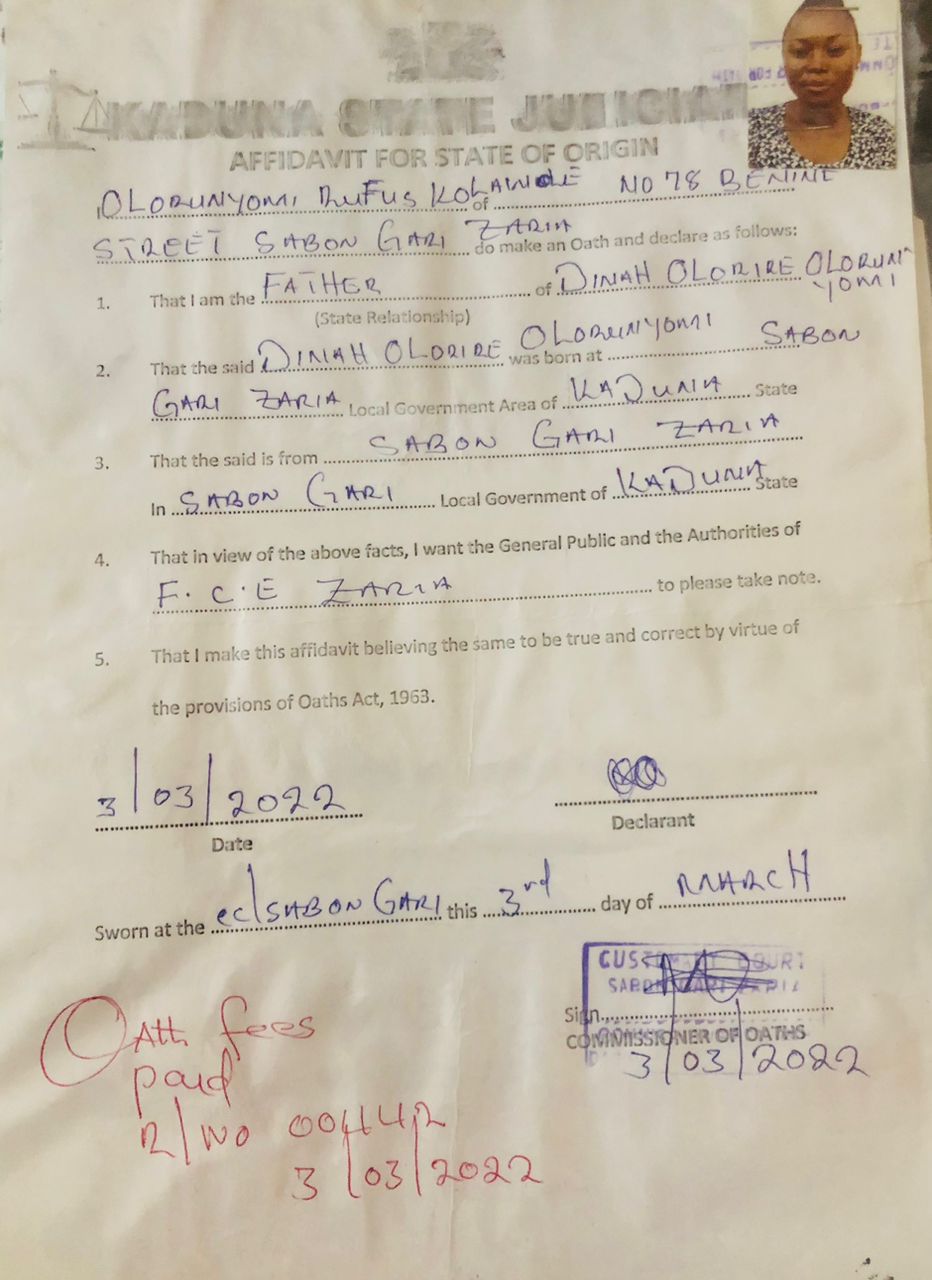 KADUNA STATE JUDICIAR
AFFIDAVIT FOR STATE OF ORIGIN
I, OLORUNYOMI RUFUS KOLAWOLE of NO 78 BENINE
STREET SABON GARI ZARIA do make an Oath and declare as follows:
1. That I am the FATHER of DINAH OLORIRE OLORUNYOMI
(State Relationship)
2. That the said DINAH OLORIRE OLORUNYOMI was born at SABON
GARI ZARIA Local Government Area of KADUNA State
3. That the said is from SABON GARI ZARIA
In SABON GARI Local Government of KADUNA State
4. That in view of the above facts, I want the General Public and the Authorities of
F.C.E ZARIA to please take note.
5. That I make this affidavit believing the same to be true and correct by virtue of
the provisions of Oaths Act, 1963.
3/03/2022
Date
Declarant
Sworn at the cc/SABON GARI this 3rd day of MARCH
CUSTOMARY COURT
SABON GARI ZARIA
Sign
COMMISSIONER OF OATHS
3/03/2022
Oath fees
paid
R/NO 004442
3/03/2022